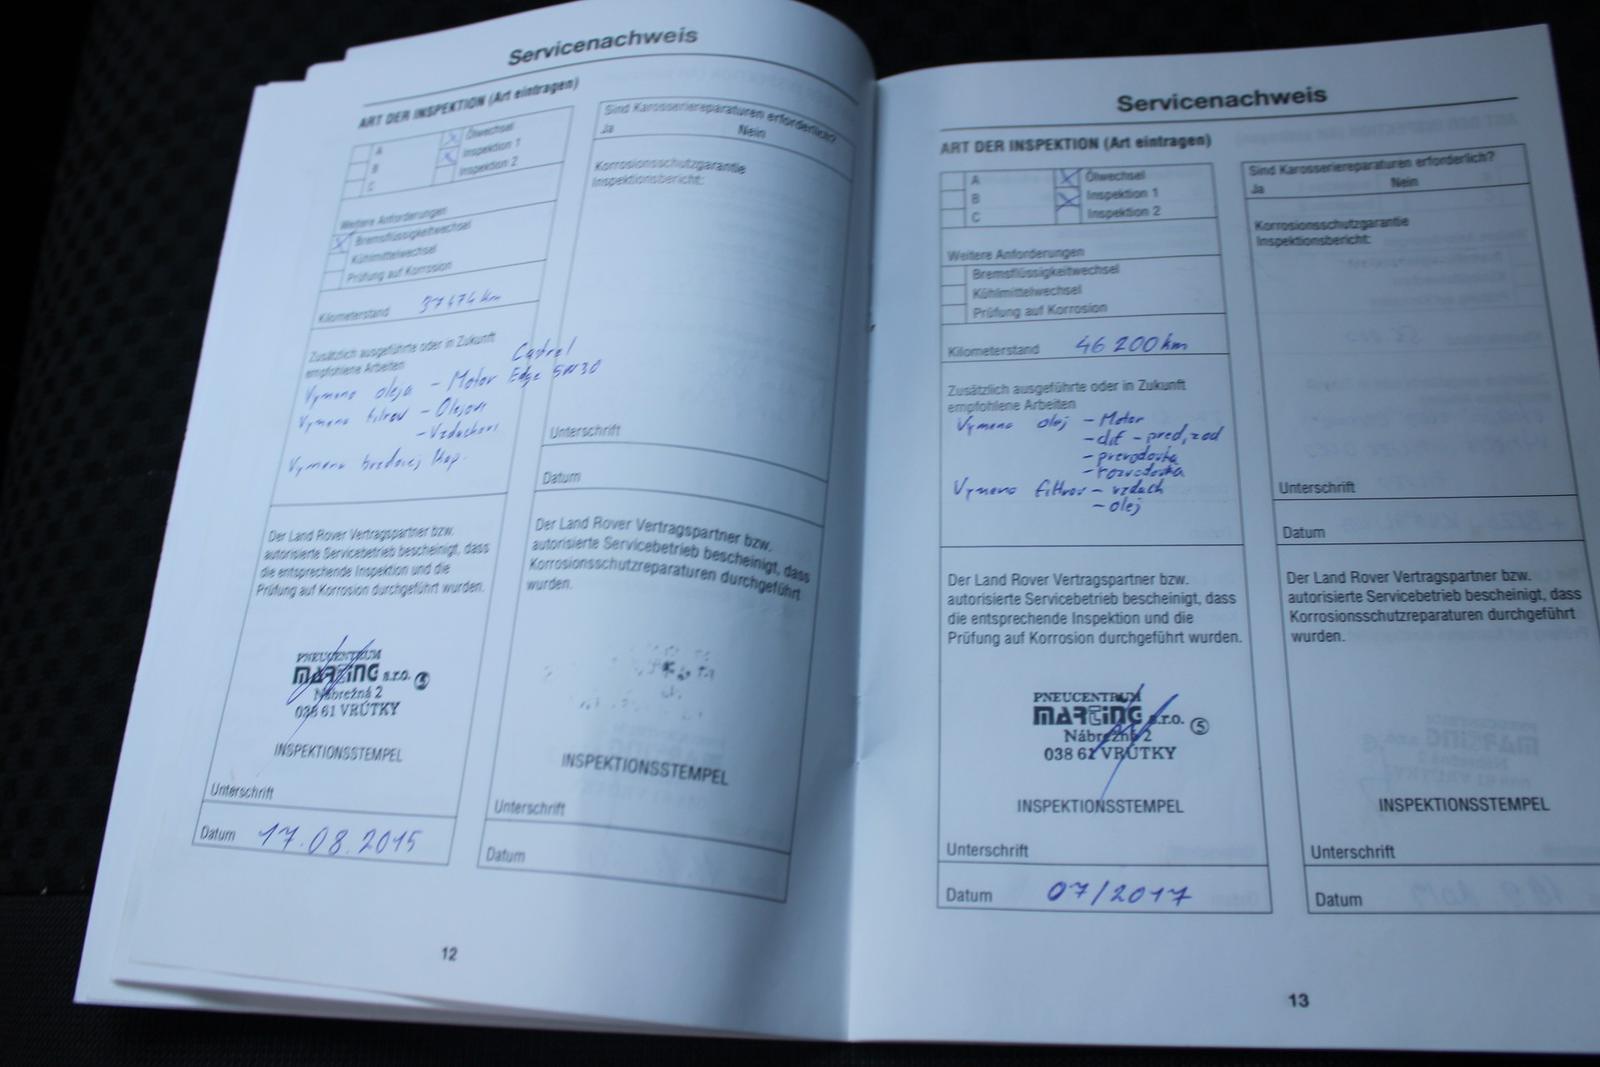 Servicenachweis
ART DER INSPEKTION (Art eintragen)
A
B
C
Ölwechsel
Inspektion 1
Inspektion 2
Weitere Anforderungen
Bremsflüssigkeitwechsel
Kühlmittelwechsel
Prüfung auf Korrosion
Kilometerstand 37474 km
Zusätzlich ausgeführte oder in Zukunft
empfohlene Arbeiten
Castrol
Vymena oleja - Motor Edge 5W30
Vymena filtrov - Olejovi
- Vzduchovi
Vymena brzdovej kvap.
Der Land Rover Vertragspartner bzw.
autorisierte Servicebetrieb bescheinigt, dass
die entsprechende Inspektion und die
Prüfung auf Korrosion durchgeführt wurden.
PNEUCENTRUM
MARTING s.r.o.
Nábrežná 2
038 61 VRÚTKY
INSPEKTIONSSTEMPEL
Unterschrift
Datum 17.08.2015
Sind Karosseriereparaturen erforderlich?
Ja Nein
Korrosionsschutzgarantie
Inspektionsbericht:
Unterschrift
Datum
Der Land Rover Vertragspartner bzw.
autorisierte Servicebetrieb bescheinigt, dass
Korrosionsschutzreparaturen durchgeführt
wurden.
INSPEKTIONSSTEMPEL
Unterschrift
Datum
12
Servicenachweis
ART DER INSPEKTION (Art eintragen)
A
B
C
Ölwechsel
Inspektion 1
Inspektion 2
Weitere Anforderungen
Bremsflüssigkeitwechsel
Kühlmittelwechsel
Prüfung auf Korrosion
Kilometerstand 46 200 km
Zusätzlich ausgeführte oder in Zukunft
empfohlene Arbeiten
Vymena olej - Motor
- dif - pred, zad
- prevodovka
- rozvodovka
Vymena filtrov - vzduch
- olej
Der Land Rover Vertragspartner bzw.
autorisierte Servicebetrieb bescheinigt, dass
die entsprechende Inspektion und die
Prüfung auf Korrosion durchgeführt wurden.
PNEUCENTRUM
MARTING s.r.o. 5
Nábrežná 2
038 61 VRÚTKY
INSPEKTIONSSTEMPEL
Unterschrift
Datum 07/2017
Sind Karosseriereparaturen erforderlich?
Ja Nein
Korrosionsschutzgarantie
Inspektionsbericht:
Unterschrift
Datum
Der Land Rover Vertragspartner bzw.
autorisierte Servicebetrieb bescheinigt, dass
Korrosionsschutzreparaturen durchgeführt
wurden.
INSPEKTIONSSTEMPEL
Unterschrift
Datum
13